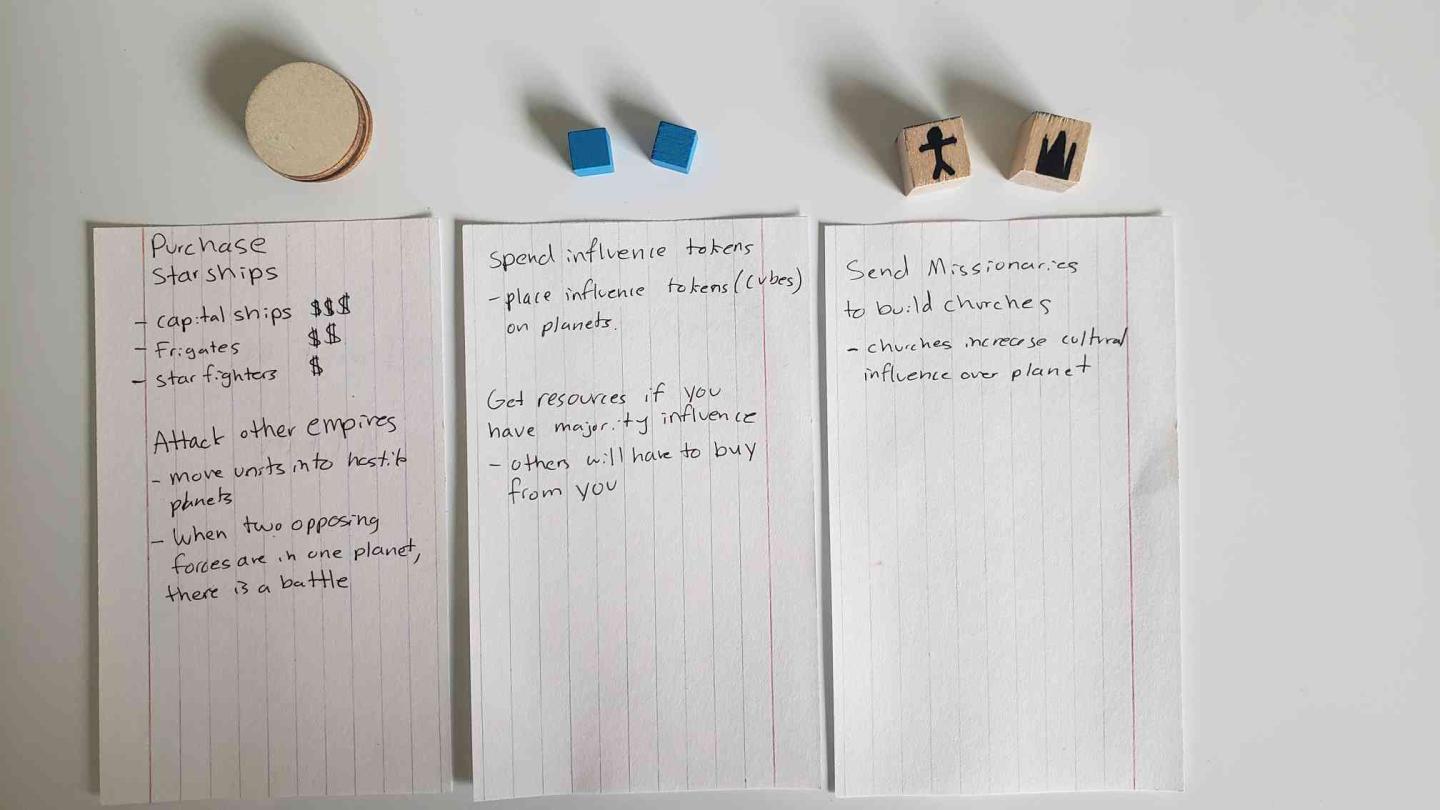 Purchase
Starships
- capital ships $$$
- Frigates $$
- starfighters $
Attack other empires
- move units into hostile
planets
- When two opposing
forces are in one planet,
there is a battle
Spend influence tokens
- place influence tokens (cubes)
on planets.
Get resources if you
have majority influence
- others will have to buy
from you
Send Missionaries
to build churches
- churches increase cultural
influence over planet